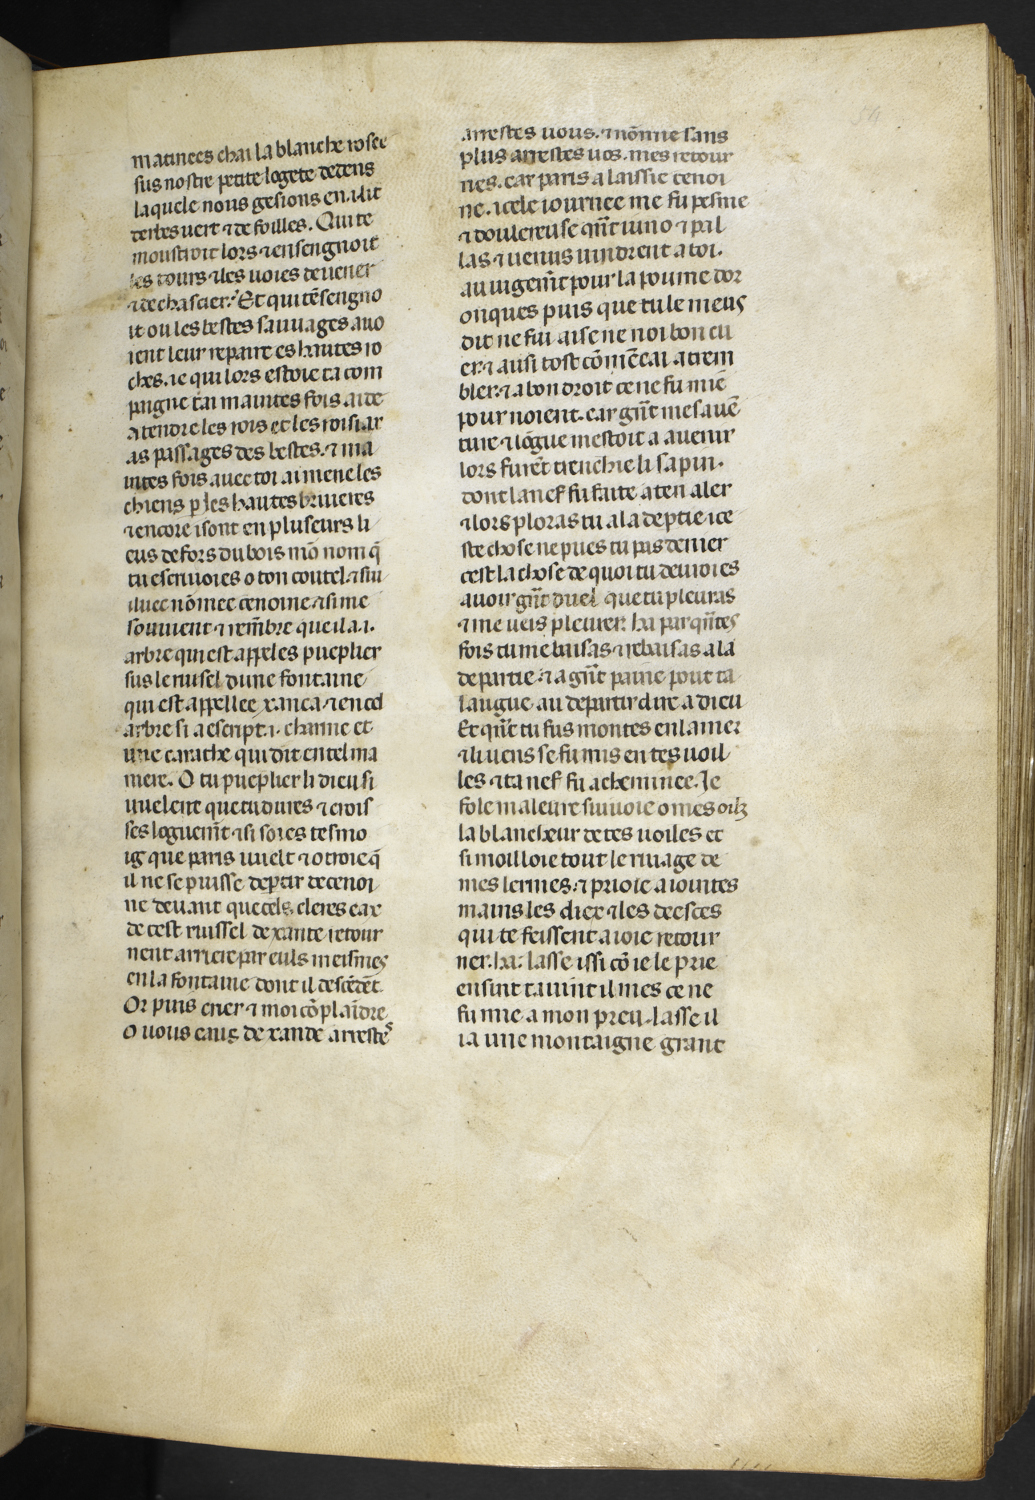 matinees chai la blanche rosee
sus nostre petite logete dedens
laquele nous gesions en .i. lit
derbes uert ⁊ de foilles. Qui te
moustroit lors ⁊ ensengnoit
les tours ⁊ les uoies de uener
⁊ de chascier. Et qui tēsengno
it ou les bestes sauuages auo
ient leur repaire es hautes ro
ches. ie qui lors estoie ta com
paigne tai maintes fois aide
a tendre les rois et les roisiar
as passages des bestes. ⁊ ma
intes fois auec toi ai mene les
chiens p les hautes bruieres
⁊ encore isont en pluseurs li
eus defors du bois mō nom q̄
tu escriuoies o ton coutel ⁊ sui
iluec nōmee cenoine ⁊ si me
souuient ⁊ remēbre que il a .i.
arbre qui est appeles pueplier
sus le ruisel dune fontaine
qui est appellee xanca ⁊ en cel
arbre si a escript .i. charme et
une carathe qui dit en tel ma
niere. O tu pueplier li dieu si
uuelent que tu dures ⁊ crois
ses loguemt ⁊ si soies tesmo
ig que paris uuelt ⁊ otroie q̄
il ne se puisse deptir de cenoi
ne deuant que cels cleres eax
de cest ruissel de xante retour
nent arriere par euls meismes
en la fontaine dont il descēdēt.
Or puis crier ⁊ moi cōplaīdre
O uous eaus de xande arrestes
arrestes uous. ⁊ mōnne sans
plus arrestes uos. mes retour
nes. car paris a laissie cenoi
ne. icele iournee me fu pesme
⁊ doulereuse qn̄t iuno ⁊ pal
las ⁊ uenus uindrent a toi.
au iugem̄t pour la poume dor
onques puis que tu le meus
dit ne fui aise ne noi bon cu
er ⁊ ausi tost cōmēcai a trem
bler. ⁊ a bon droit ce ne fu mie
pour noient. car gn̄t mesauē
ture ⁊ lōgue mestoit a auenir
lors furēt trenchie li sapin.
dont la nef fu faite a ten aler
⁊ lors ploras tu a la deptie ice
ste chose ne pues tu pas denier
cest la chose de quoi tu deuroies
auoir gn̄t duel que tu pleuras
⁊ me ueis pleurer. ha par qn̄tes
fois tu me baisas ⁊ rebaisas a la
departie. ⁊ a gn̄t paine pout ta
laugue au departir dire a dieu
Et qn̄t tu fus montes en la mer
⁊ li uens se fu mis en tes uoil
les ⁊ ta nef fu acheminee. Je
fole maleure siuuoie o mes oilz
la blancheur de tes uoiles et
si moilloie tout le riuage de
mes lermes. ⁊ prioie a iointes
mains les diex ⁊ les deesces
qui te feissent a ioie retour
ner. ha: lasse issi cō ie le prie
ensint tauint il mes ce ne
fu mie a mon preu. lasse il
ia une montaigne grant